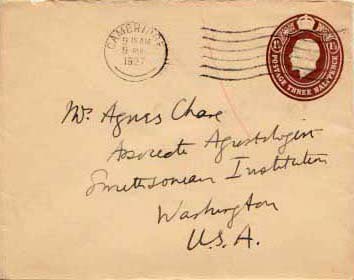 CAMBRIDGE
9 15 AM
1927
POSTAGE THREE HALFPENCE
Mr. Agnes Chase
Associate Agrostologist
Smithsonian Institution
Washington
U.S.A.